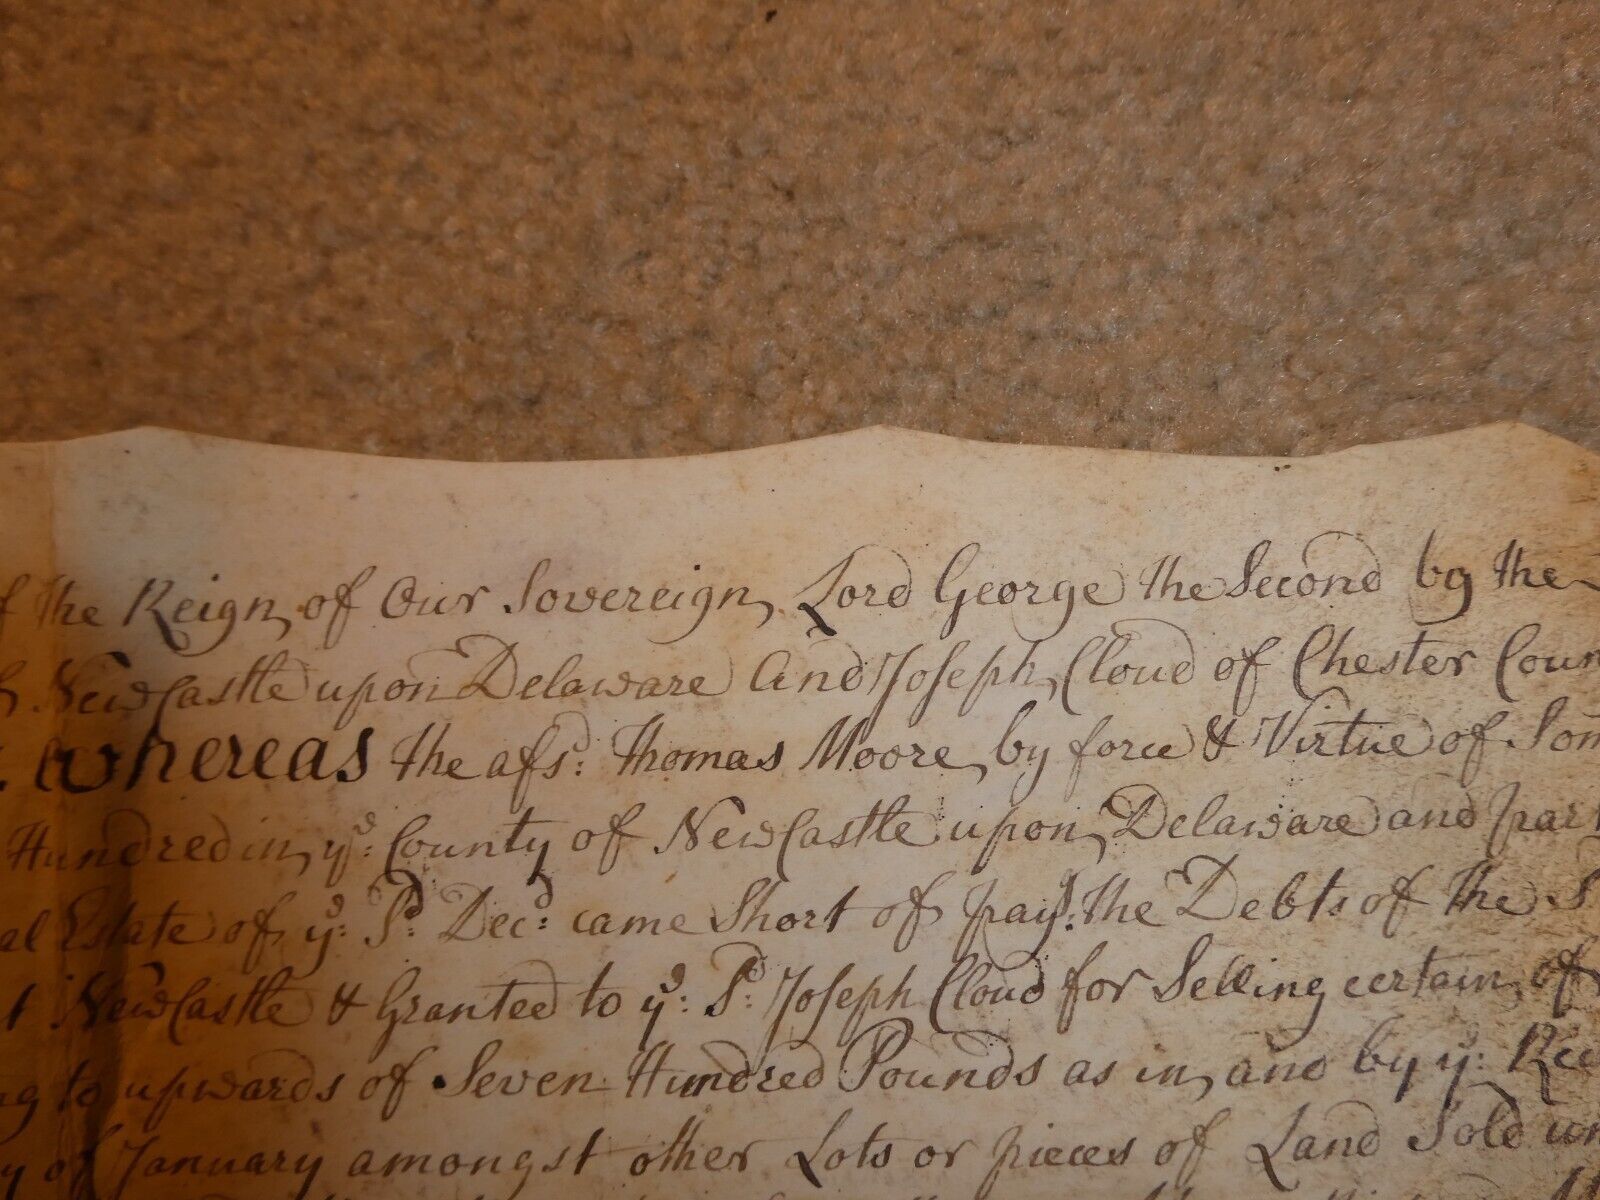 the Reign of Our Sovereign Lord George the Second by the
NewCastle upon Delaware and Joseph Cloud of Chester Coun
Whereas the afsd: Thomas Moore by force & Virtue of Som
Hundred in ye: County of NewCastle upon Delaware and part
al Estate of ye: Sd: Decd: came Short of payg: the Debts of the S
t NewCastle & Granted to ye: Sd: Joseph Cloud for Selling certain of
ng to upwards of Seven Hundred Pounds as in and by ye: Rec
y of January amongst other Lots or pieces of Land Sold un